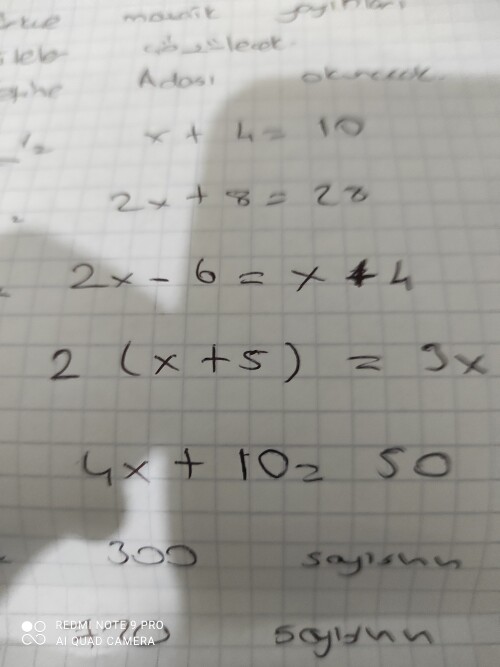 mantık yayınları
Adası okunacak.
x + 4 = 10
2x + 8 = 28
2x - 6 = x + 4
2 (x + 5) = 3x
4x + 10 = 50
300 sayısının
sayısının
REDMI NOTE 9 PRO
AI QUAD CAMERA